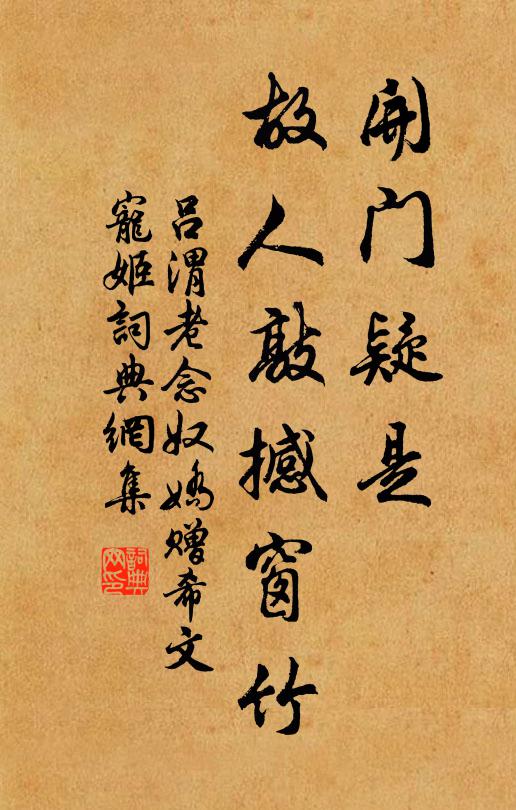 開門疑是
故人敲撼窗竹
呂渭老念奴嬌贈希文
寵姬詞典網集
詞典
网印